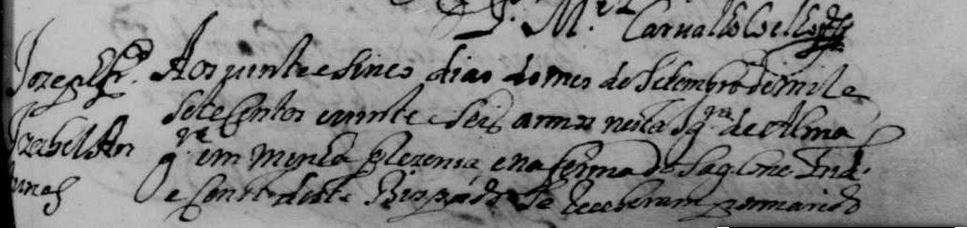 P. M.el Carvalho Coelho
Jozeph Fr.
Izabel An
tunes
Aos vinte e sinco dias do mes de Setembro de mil e
sete Centos e vinte e seis annos nesta Igr.a de Alma
g.re em minha prezensa, e na forma do Sag. Conc. Trid.
e Const. deste Bispado se Receberam por marido